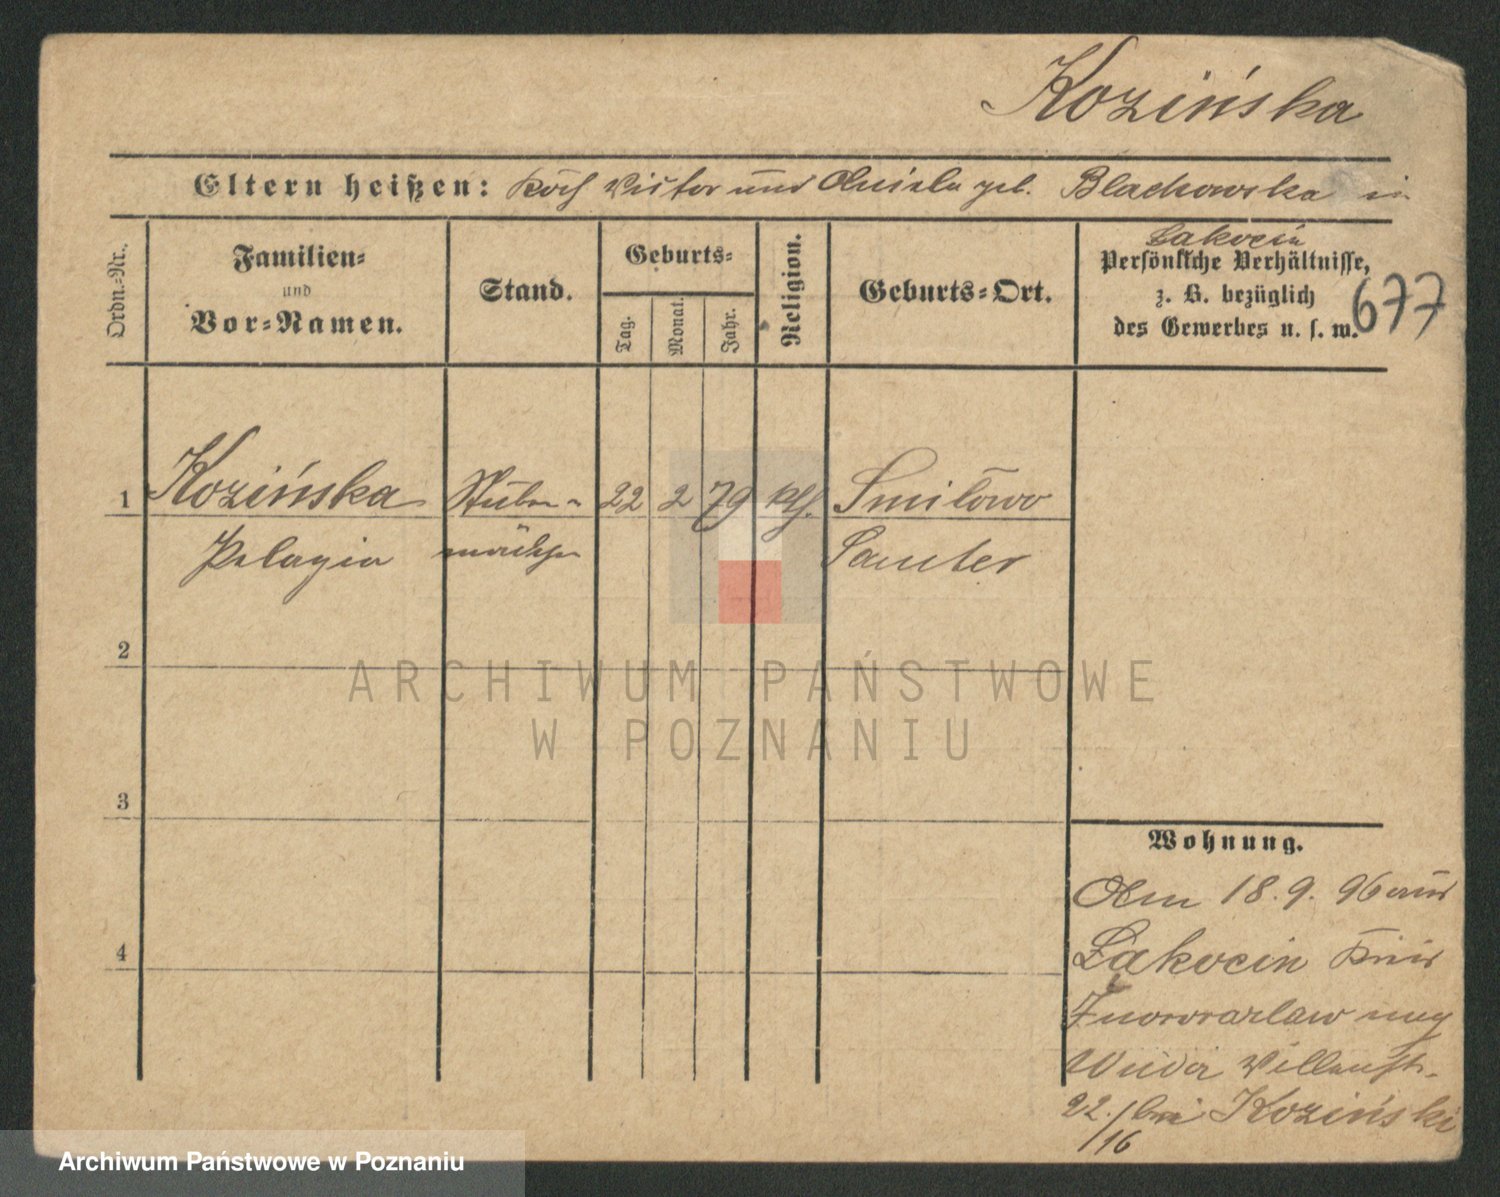 Kozińska
Eltern heißen: Koch Victor und Aniela geb. Blachowska in
Łakocin
Ordn.-Nr.
Familien-
und
Vor-Namen.
Stand.
Geburts-
Tag.
Monat.
Jahr.
Religion.
Geburts-Ort.
Persönliche Verhältnisse,
z. B. bezüglich
des Gewerbes u. s. w.
677
1 Kozińska Stuben- 22 2 79 kth. Smilowo
Pelagia mädchen Samter
2
3
4
Wohnung.
Am 18. 9. 96 aus
Łakocin Kreis
Inowrazlaw
22./ bei Koziński
16
ARCHIWUM PAŃSTWOWE
W POZNANIU
Archiwum Państwowe w Poznaniu